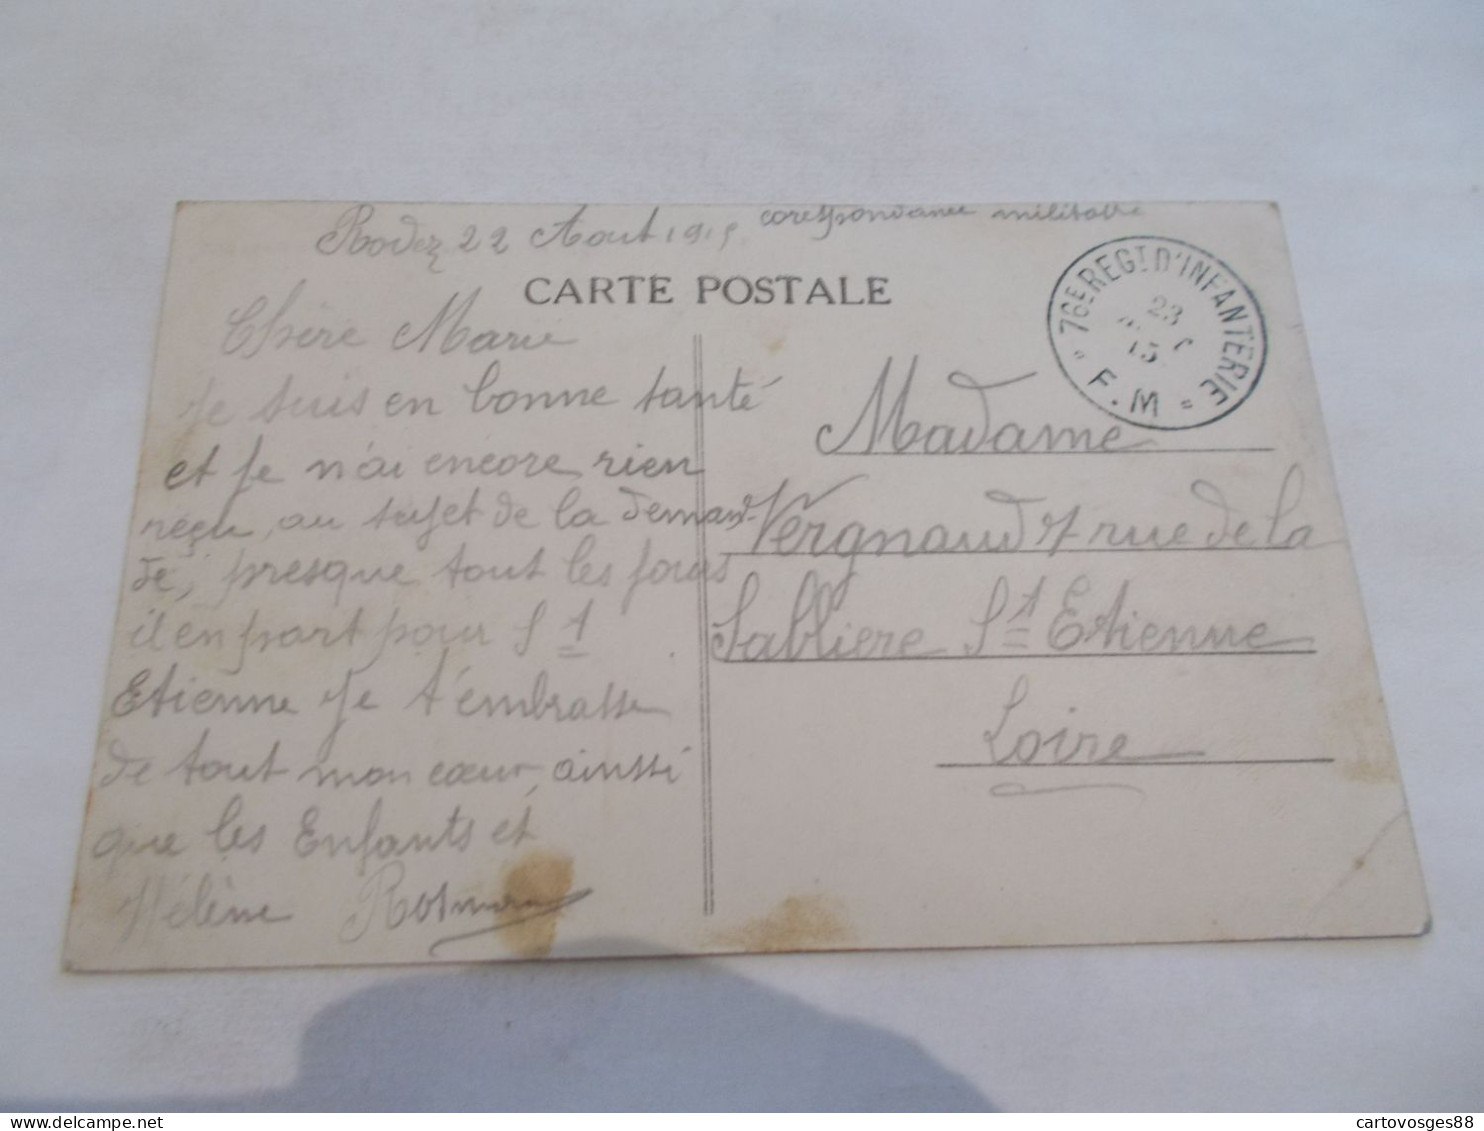 Rodez 22 Aout 1915 corespondance militaire
CARTE POSTALE
76E REGT D'INFANTERIE
23
15
F.M
Chère Marie
Je suis en bonne santé
et je n'ai encore rien
reçu, au sujet de la deman-
de, presque tout les jours
il en part pour St
Etienne Je t'embrasse
de tout mon cœur, ainssi
que les Enfants et
Hélène
Madame
Vergnaud 7 rue de la
Sabliere St Etienne
Loire
cartovosges88